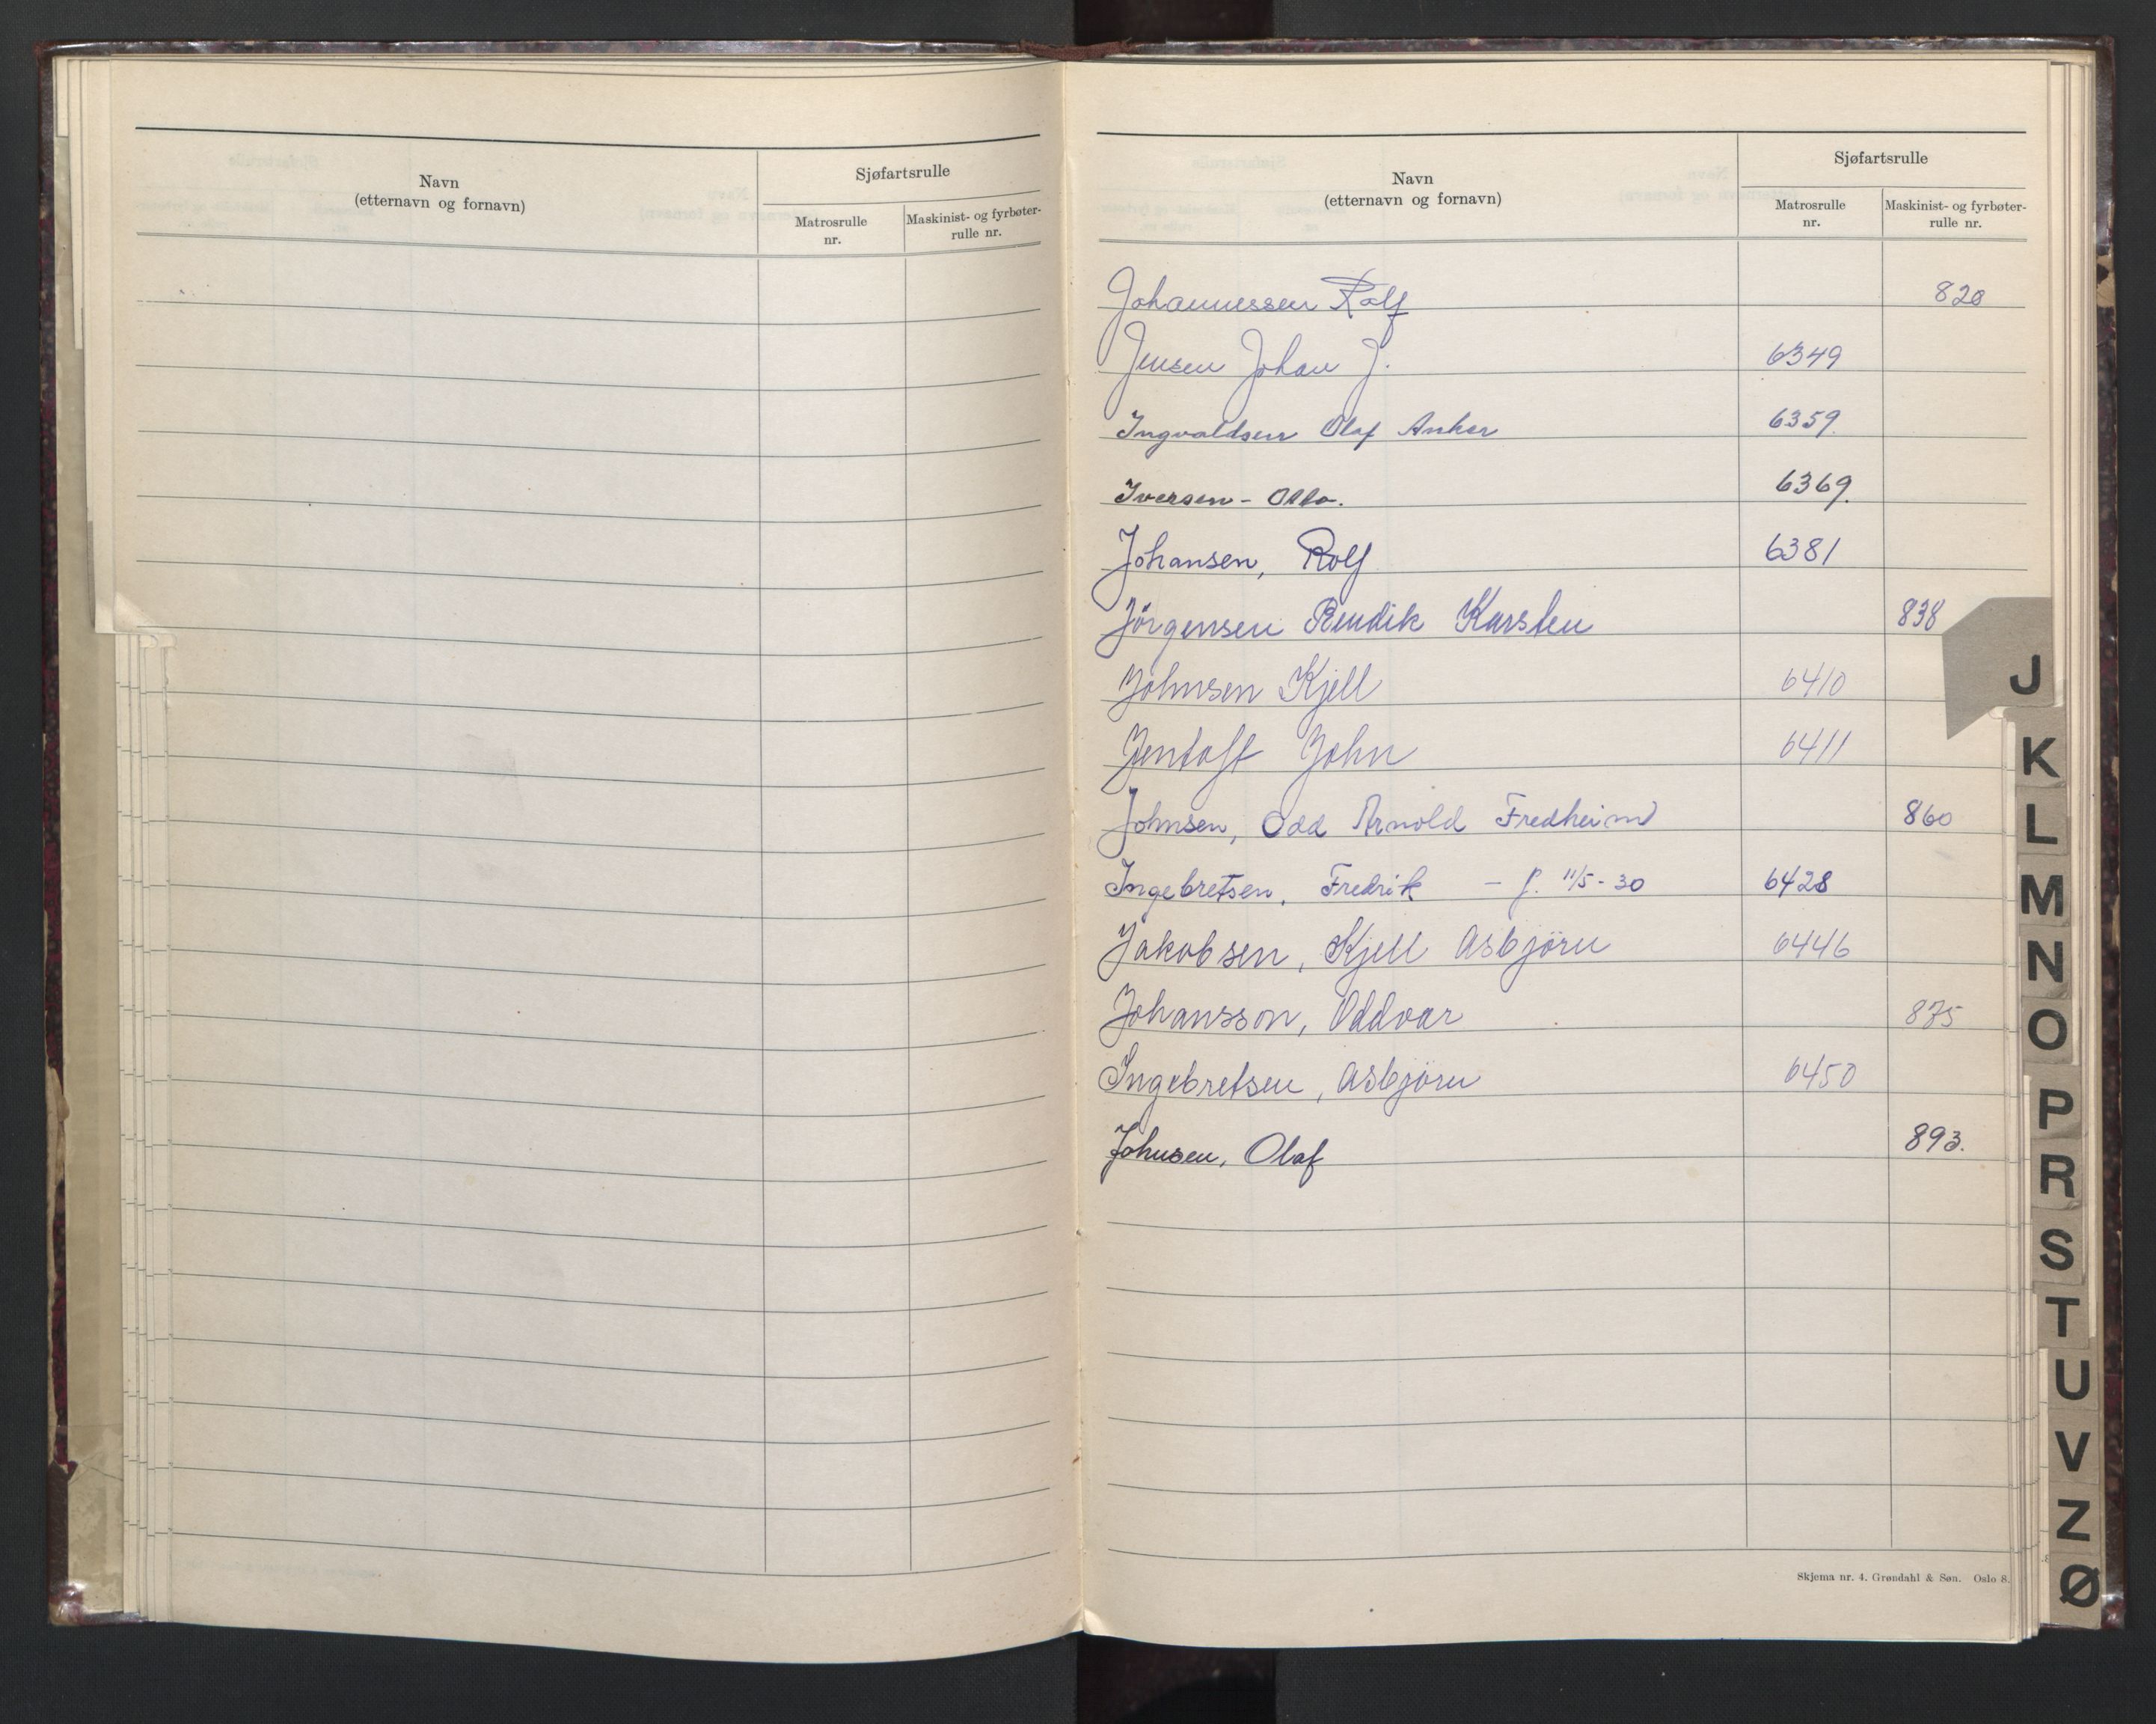 Navn
(etternavn og fornavn)
Sjøfartsrulle
Matrosrulle
nr.
Maskinist- og fyrbøter-
rulle nr.
Navn
(etternavn og fornavn)
Sjøfartsrulle
Matrosrulle
nr.
Maskinist- og fyrbøter-
rulle nr.
Johannessen Rolf 820
Jensen Johan J. 6349
Ingvaldsen Olaf Anker 6359.
Iversen - Otto. 6369.
Johansen, Rolf 6381
Jörgensen Bendik Karsten 838
Johnsen Kjell 6410
Jentoft John 6411
Johnsen, Odd Arnold Fredheim 860
Ingebretsen, Fredrik - f. 11/5-30 6428
Jakobsen, Kjell Asbjörn 6446
Johansson, Oddvar 875
Ingebretsen, Asbjörn 6450
Johnsen, Olaf 893.
Skjema nr. 4. Grøndahl & Søn. Oslo 8.
J
K
L
M
N
O
P
R
S
T
U
V
Z
Ø